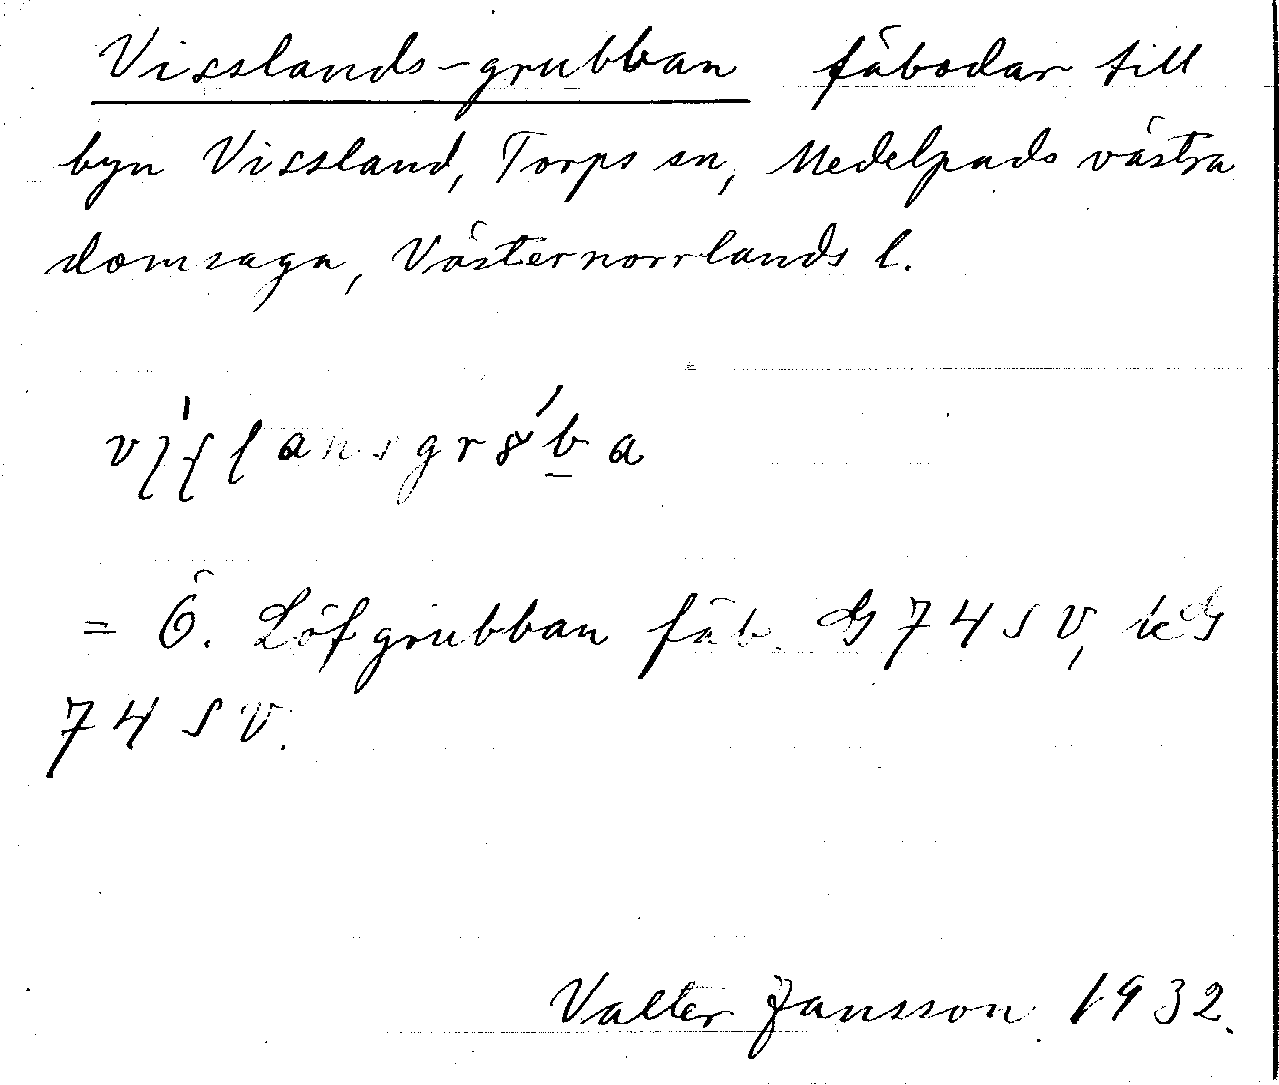 Visslands-grubban fäbodar till
byn Vissland, Torps sn, Medelpads västra
domsaga, Västernorrlands l.
= Ö. Löfgrubban fäb. G 74 SV, kG
74 SV.
Valter Jansson 1932.